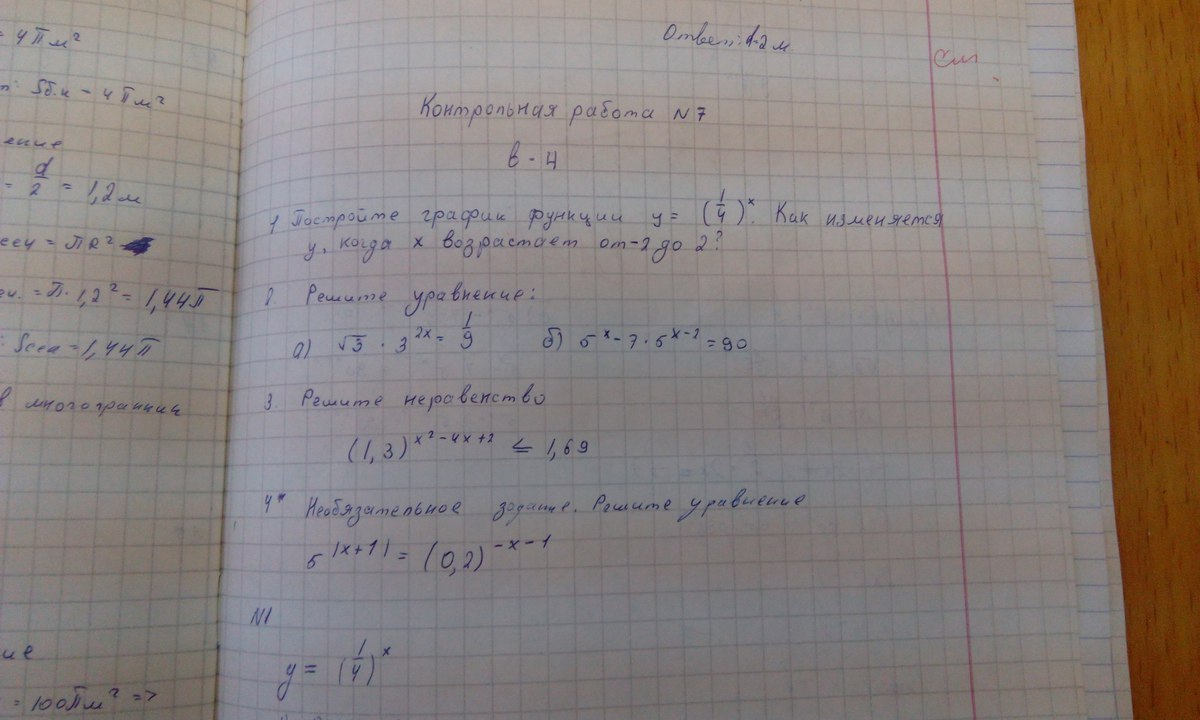 = 4π м²
Sб.к - 4π м²
ение
= d/2 = 1,2 м
= πR²
= π · 1,2² = 1,44π
= 1,44π
в многогранник
ие
= 100π м² =>
Ответ: 1.2 м
См
Контрольная работа N7
В - 4
1 Постройте график функции y = (1/4)^x. Как изменяется
y, когда x возрастает от -2 до 2?
2. Решите уравнение:
а) √3 · 3^2x = 1/9 б) 5^x - 7 · 5^x-2 = 90
3. Решите неравенство
(1,3)^x²-4x+2 ≤ 1,69
4* Необязательное задание. Решите уравнение
5^|x+1| = (0,2)^-x-1
N1
y = (1/4)^x